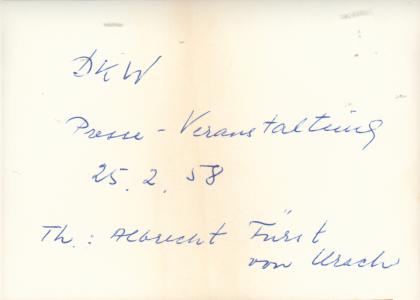 DKW
Presse-Veranstaltung
25. 2. 58
Th.: Albrecht Fürst
von Urach